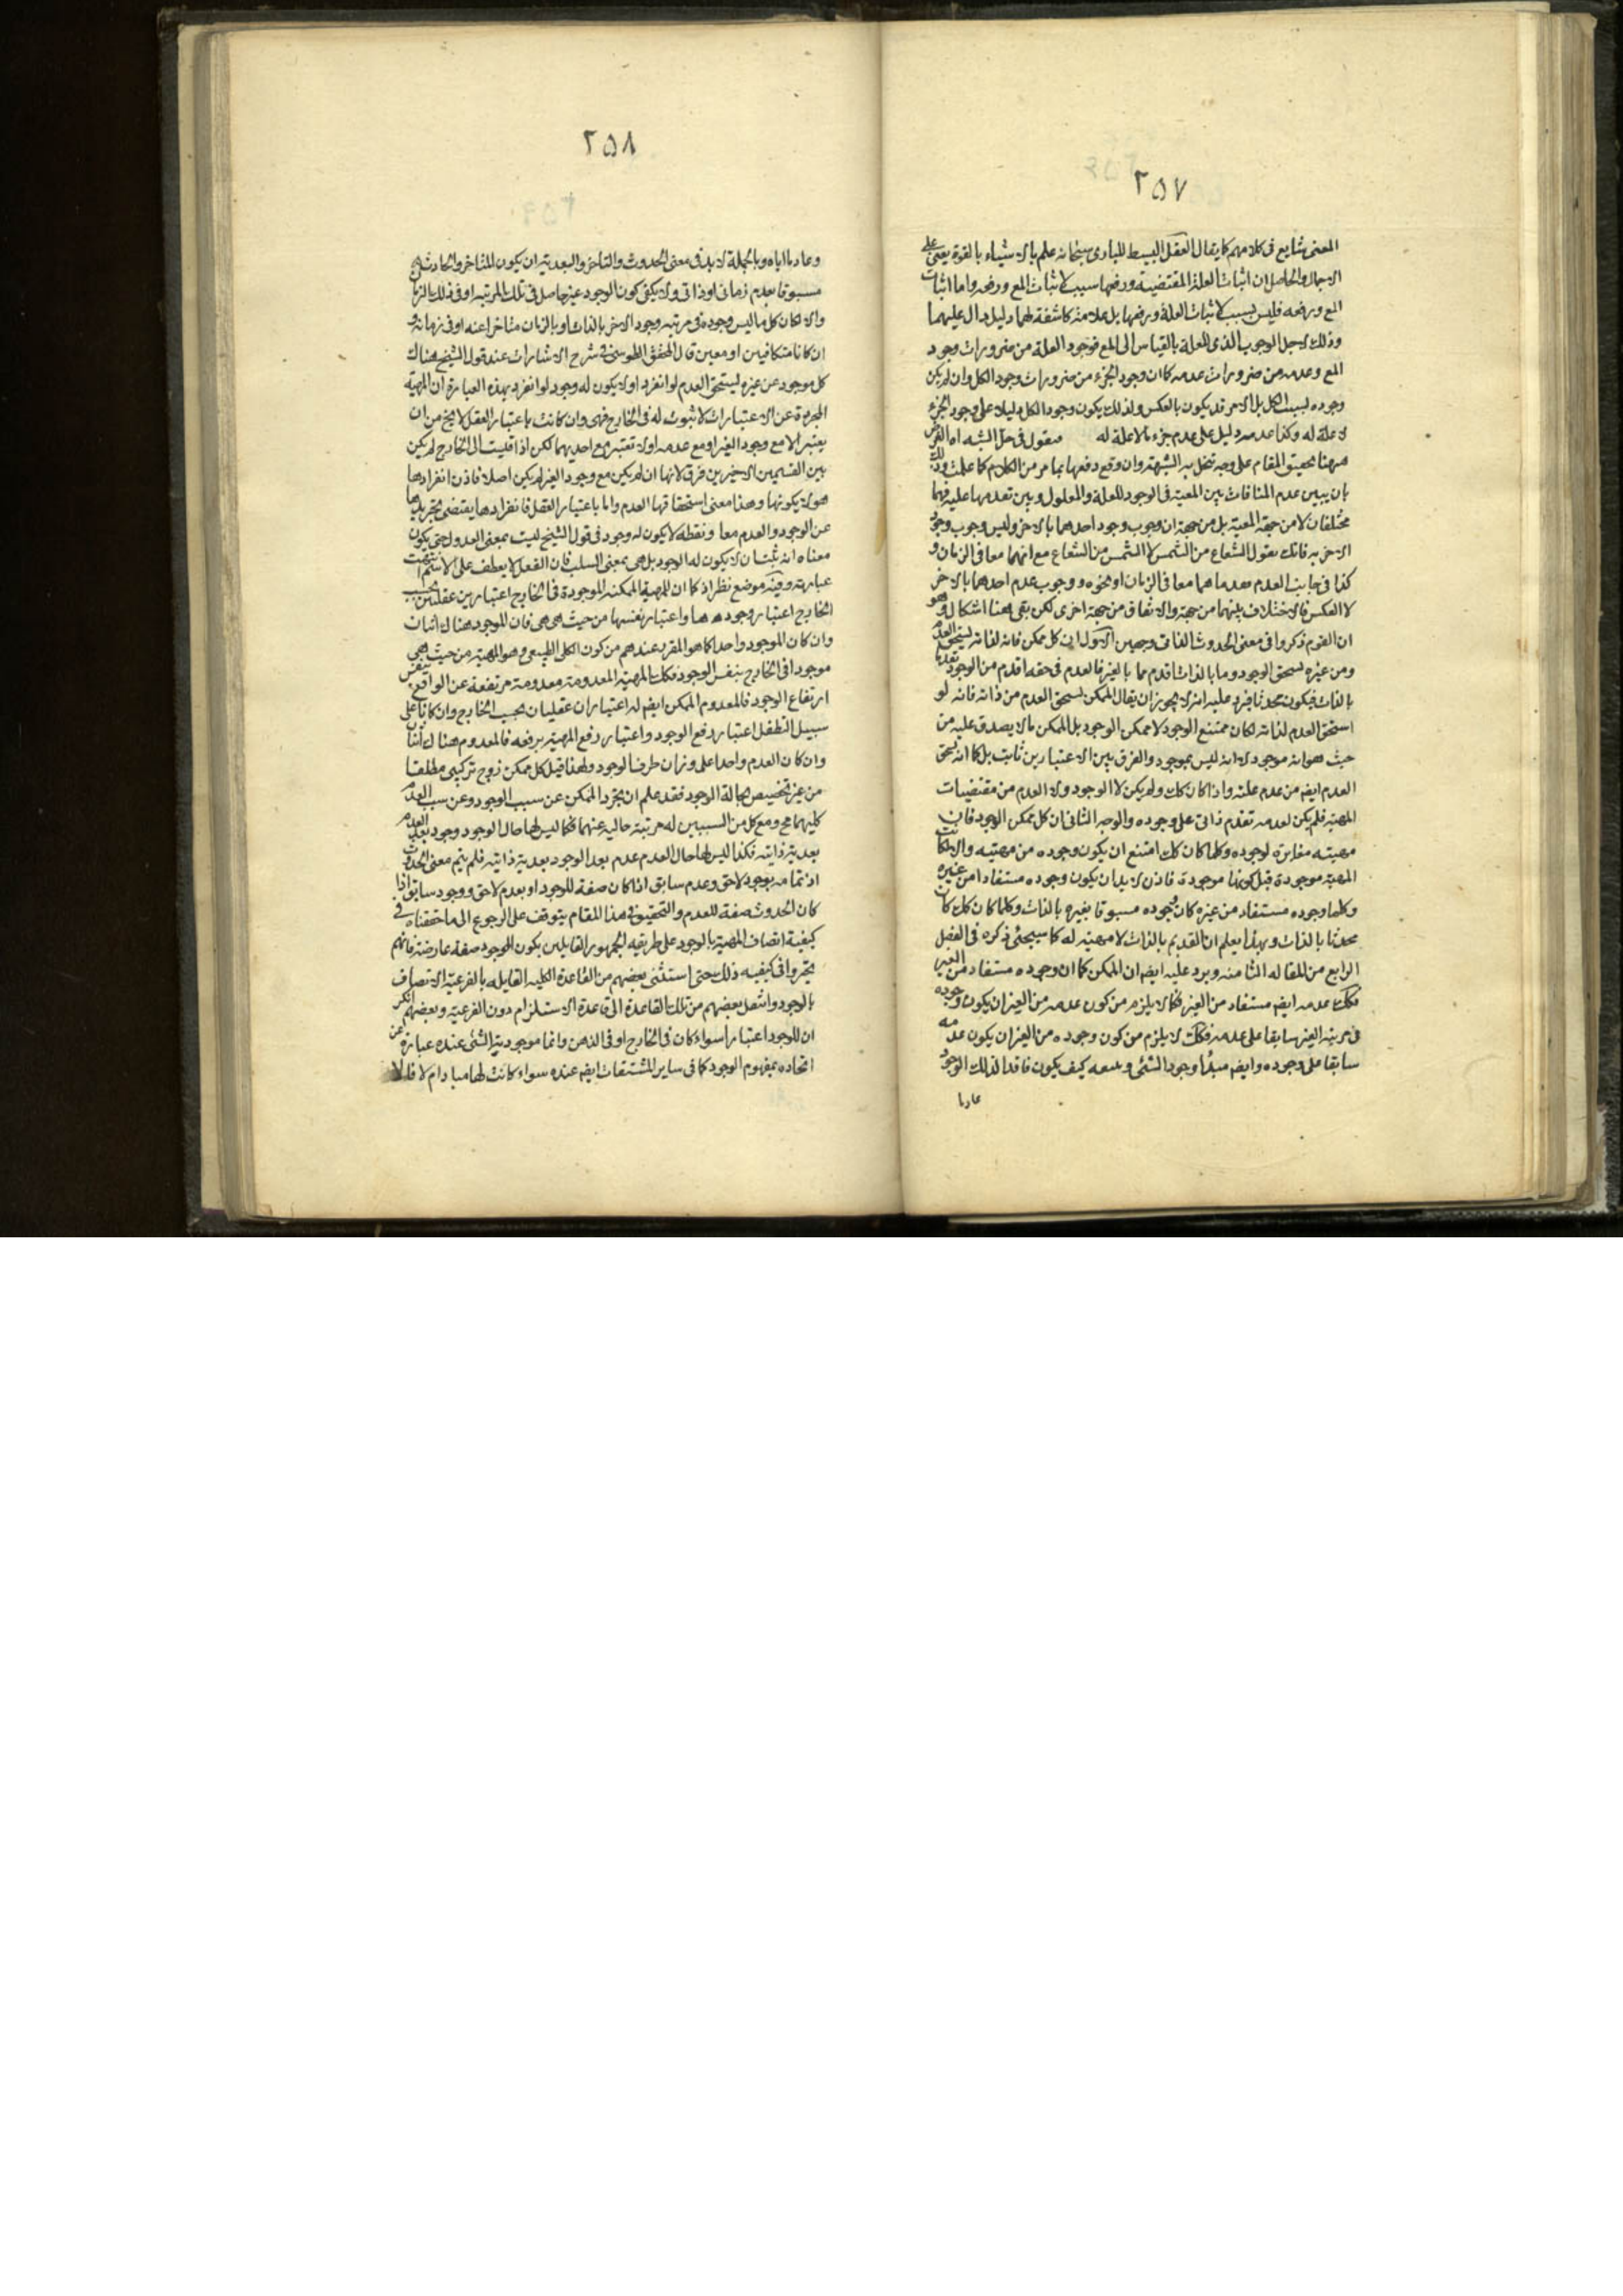 ٢٥٧
المعنى شايع فى كلامهم كما يقال العقل البسيط للبارى سبحانه علم بالاشياء بالقوة يعنى على
الاجمال والحاصل ان اثبات العلة المقتضية ورفعها سبب لاثبات المع ورفعه واما اثبات
المع ورفعه فليس بسبب لاثبات العلة ورفعها بل علامة كاشفة لهما دليل دال عليهما
وذلك لاجل الوجوب الذى للعلة بالقياس الى المع فوجود العلة من ضرورات وجود
المع وعدمه من ضرورات عدمه كما ان وجود الجزء من ضرورات وجود الكل وان لم يكن
وجوده لسبب الكل بل الامر قد يكون بالعكس ولذلك يكون وجود الكل دليلا على وجود الجزء
لا علة له وكذا عدمه دليل على عدم جزء ما لا علة له فنقول فى حل الشبه اه الغرض
ههنا تحقيق المقام على وجه تنحل به الشبهة وان وقع دفعها بما مر من الكلام كما علمت وذلك
بان يبين عدم المنافات بين المعية فى الوجود للعلة والمعلول وبين تقدمها عليه فهما
مختلفان لا من جهة المعية بل من جهة ان وجوب وجود احدهما بالاخر وليس وجوب وجود
الاخر به فانك تقول الشعاع من الشمس لا الشمس من الشعاع مع انهما معا فى الزمان و
كذا فى جانب العدم فعدماهما معا فى الزمان او نحوه ووجوب عدم احدهما بالاخر
لا العكس فالاختلاف بينهما من جهة والاتفاق من جهة اخرى لكن بقى ههنا اشكال وهو
ان القوم ذكروا فى معنى الحدوث الذاتى وجهين الاول ان كل ممكن فانه لذاته يستحق العدم
ومن غيره يستحق الوجود وما بالذات اقدم مما بالغير فالعدم فى حقه اقدم من الوجود تقدما
بالذات فيكون محدثا فيرد عليه انه لا يجوز ان يقال الممكن يستحق العدم من ذاته فانه لو
استحق العدم لذاته لكان ممتنع الوجود لا ممكن الوجود بل الممكن ما لا يصدق عليه من
حيث هو انه موجود لا انه ليس بموجود والفرق بين الاعتبارين ثابت بل كما انه يستحق
العدم ايضا من عدم علته واذا كان كك ولم يكن لا الوجود ولا العدم من مقتضيات
المهية فلم يكن لعدمه تقدم ذاتى على وجوده والوجه الثانى ان كل ممكن الوجود فان
مهيته مغايرة لوجوده وكلما كان كك امتنع ان يكون وجوده من مهيته والا لكانت
المهية موجودة قبل كونها موجودة فاذن لا بد ان يكون وجوده مستفادا من غيره
وكلما وجوده مستفاد من غيره كان وجوده مسبوقا بغيره بالذات وكلما كان كك كان
محدثا بالذات وبهذا يعلم ان القديم بالذات لا مهية له كما سيجئى ذكره فى الفصل
الرابع من المقاله الثامنه ويرد عليه ايضا ان الممكن كما ان وجوده مستفاد من الغير
فكك عدمه ايضا مستفاد من الغير فكما لا يلزم من كون عدمه من الغير ان يكون وجوده
فى مرتبة الغير سابقا على عدمه فكك لا يلزم من كون وجوده من الغير ان يكون عدمه
سابقا على وجوده وايضا مبدأ وجود الشئى ومنبعه كيف يكون فاقدا لذلك الوجود
عادما
٢٥٨
وعادما اياه وبالجملة لا بد فى معنى الحدوث والتاخر والبعدية ان يكون المتاخر والحادث
مسبوقا بعدم زمانى او ذاتى ولا يكفى كون الوجود غير حاصل فى تلك المرتبه او فى ذلك الزمان
والا لكان كل ما ليس وجوده فى مرتبه وجود الاخر بالذات او بالزمان متاخرا عنه او فى زمانه و
ان كانا متكافيين او معين قال المحقق الطوسى فى شرح الاشارات عند قول الشيخ هناك
كل موجود عن غيره يستحق العدم لو انفرد اولا يكون له وجود لو انفرد بهذه العبارة ان المهية
المجردة عن الاعتبارات لا ثبوت له فى الخارج فهى وان كانت باعتبار العقل لا يخ من ان
يعتبر الا مع وجود الغير او مع عدمه اولا تعتبر مع احديهما لكن اذا قيست الى الخارج لم يكن
بين القسمين الاخيرين فرق لانها ان لم يكن مع وجود الغير لم يكن اصلا فاذن انفرادها
هو لا يكونها وهذا معنى استحقاقها العدم واما باعتبار العقل فانفرادها يقتضى تجريدها
عن الوجود والعدم معا ونقطة لا يكون له وجود فى قول الشيخ ليست بمعنى العدول حتى يكون
معناه انه يثبت ان لا يكون له الوجود بل هى بمعنى السلب فان الفعل لا يعطف على الاسم انتهت
عبارته وفيه موضع نظر اذ كما ان للمهية الممكنه الموجودة فى الخارج اعتبارين عقليين بحسب
الخارج اعتبار وجودها واعتبار نفسها من حيث هى هى فان الموجود هناك اثنان
وان كان الموجود واحدا كما هو المقرر عندهم من كون الكلى الطبيعى وهو المهية من حيث هى
موجودا فى الخارج بنفس الوجود فكك المهية المعدومة معدومة مرتفعة عن الواقع بنفس
ارتفاع الوجود فالمعدوم الممكن ايضا له اعتباران عقليان بحسب الخارج وان كانا على
سبيل التطفل اعتبار رفع الوجود واعتبار رفع المهية برفعه فالمعدوم هناك اثنان
وان كان العدم واحدا على وزان طرف الوجود ولهذا قيل كل ممكن زوج تركيبى مطلقا
من غير تخصيص بحالة الوجود فقد علم ان تجرد الممكن عن سبب الوجود وعن سبب العدم
كليهما مح ومع كل من السببين له مرتبة خالية عنهما فكما ليس لها حال الوجود وجود بعد العدم
بعدية ذاتية فكذا ليس لها حال العدم عدم بعد الوجود بعدية ذاتية فلم يتم معنى الحدوث
اذ تمامه بوجود لاحق وعدم سابق اذا كان صفة للوجود او بعدم لاحق ووجود سابق اذا
كان الحدوث صفة للعدم والتحقيق فى هذا المقام يتوقف على الرجوع الى ما حققناه فى
كيفية اتصاف المهية بالوجود على طريقه الجمهور القايلين بكون الوجود صفة عارضة فانهم
تحيروا فى كيفيه ذلك حتى استثنى بعضهم من القاعدة الكليه القايله بالفرعية الاتصاف
بالوجود وانتقل بعضهم من تلك القاعدة الى قاعدة الاستلزام دون الفرعية وبعضهم انكر
ان للوجود اعتبارا سواء كان فى الخارج او فى الذهن وانما موجودية الشئى عنده عبارة عن
اتحاده بمفهوم الوجود كما فى ساير المشتقات ايضا عنده سواء كانت لها مباد ام لا